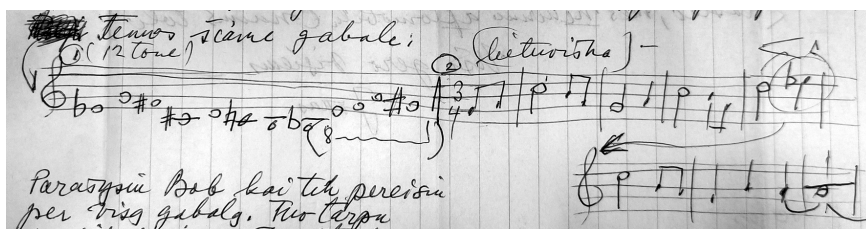 Temos šiame gabale:
① (12 tone) ② (lietuviška) –
3
4
8
Parašysiu Bob kai tik pereisiu
per visą gabalą. Tuo tarpu